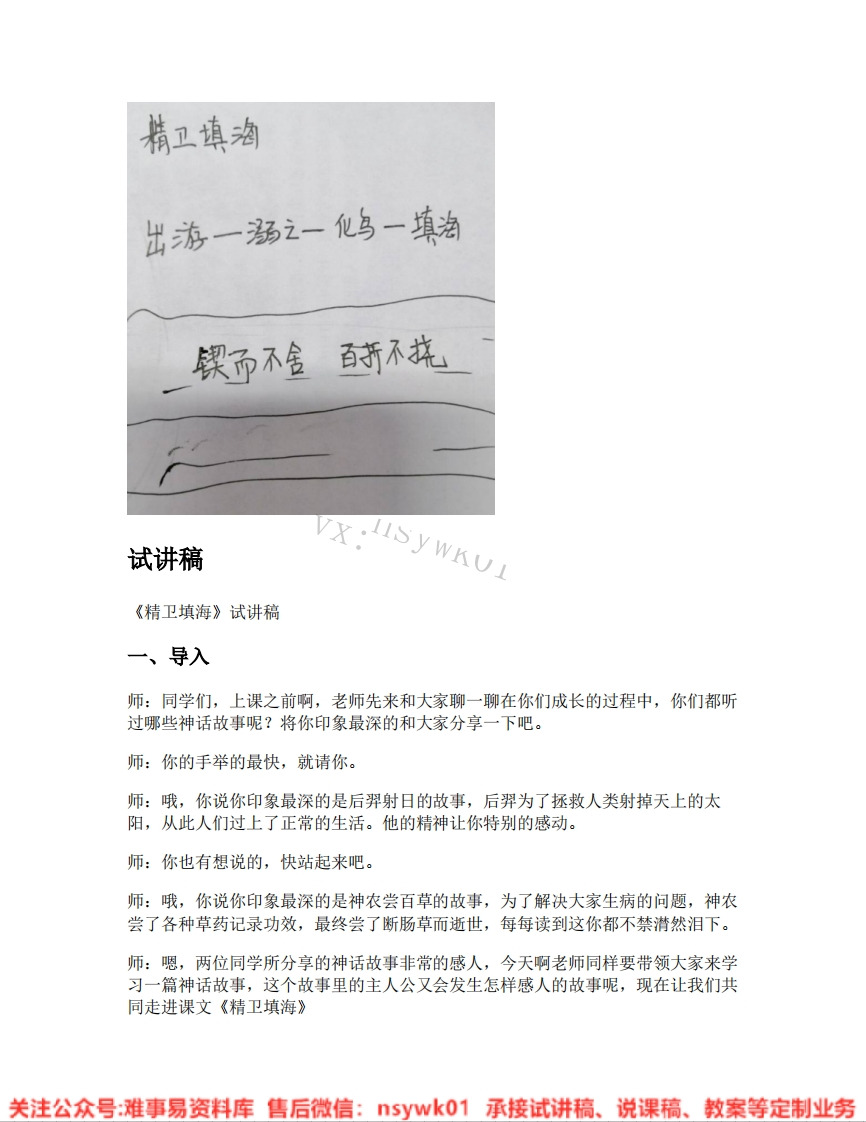 精卫填海
出游—溺之—化鸟—填海
锲而不舍 百折不挠
VX:nsywk01
试讲稿
《精卫填海》试讲稿
一、导入
师：同学们，上课之前啊，老师先来和大家聊一聊在你们成长的过程中，你们都听
过哪些神话故事呢？将你印象最深的和大家分享一下吧。
师：你的手举的最快，就请你。
师：哦，你说你印象最深的是后羿射日的故事，后羿为了拯救人类射掉天上的太
阳，从此人们过上了正常的生活。他的精神让你特别的感动。
师：你也有想说的，快站起来吧。
师：哦，你说你印象最深的是神农尝百草的故事，为了解决大家生病的问题，神农
尝了各种草药记录功效，最终尝了断肠草而逝世，每每读到这你都不禁潸然泪下。
师：嗯，两位同学所分享的神话故事非常的感人，今天啊老师同样要带领大家来学
习一篇神话故事，这个故事里的主人公又会发生怎样感人的故事呢，现在让我们共
同走进课文《精卫填海》
关注公众号:难事易资料库 售后微信：nsywk01 承接试讲稿、说课稿、教案等定制业务